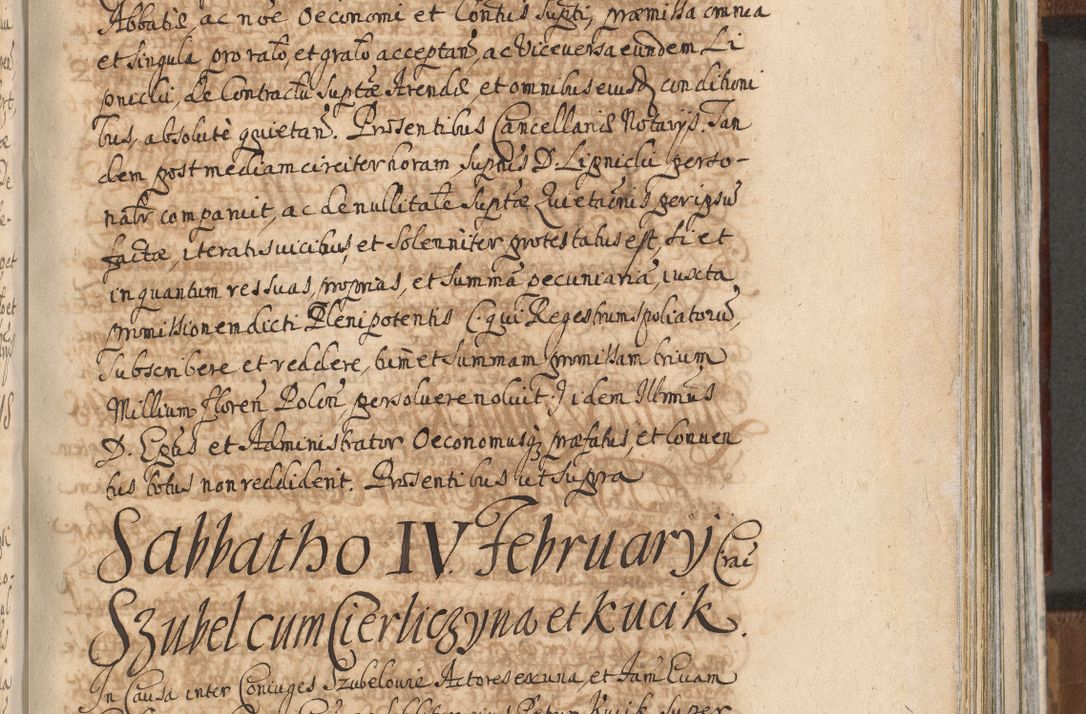 Abbatiæ ac noĩe Oeconomi et Conũtus Supti, præmissa omnia
et singula pro rato, et grato acceptan, ac viceversa eundem Li
pnicki, de Contractu Suptæ Arendæ, et omnibus eiusdẽ conditioni
bus, absolutè quietan. Præsentibus Cancellariæ Notarijs. Tan
dem post mediam circiter horam, suptus D. Lipnicki perso-
nalr comparuit, ac de nullitate Suptæ Quietaõnis per ipsũ
factæ, iteratis vicibus, et Solenniter protestatus est, si et
inquantum res suas, proprias, et Summã pecuniariã, iuxta
promissionem dicti Plenipotentis C. qui Regestrum spoliatorũ,
Subscribere et reddere, tum et Summam promissam trium
Millium floreñ Poloñ, persolvere noluit. Iidem Illrmus
D. Eppus et Administrator Oeconomusq præfatus, et Conven
tus totus non reddident. Præsentibus ut Supra
Sabbatho IV. February Crac
Szubel cum Cierliczyna et Kucik.
In Causa inter Coniuges Szubelowie Actores ex una, et Fam Evam
Petrum Kucik super